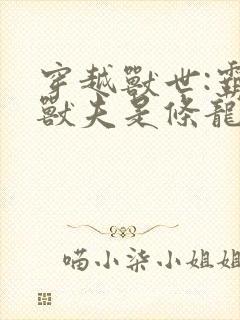 穿越獸世:霸
獸夫是條龍
喵小柒小姐姐